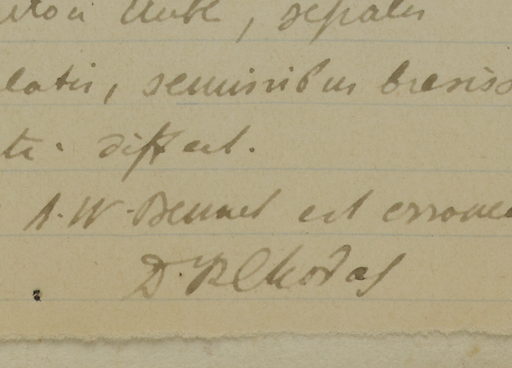 , sepalis
latis, seminibus breviss
differt.
A. W. Bennet est erronea
Dr R Chodat